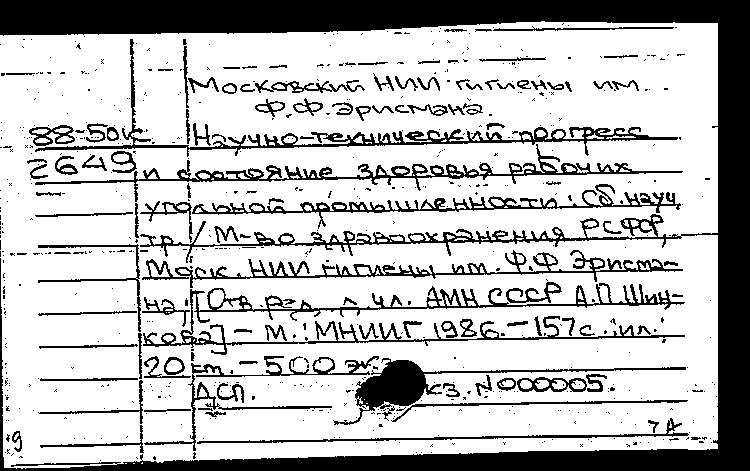 Московский НИИ гигиены им.
Ф.Ф. Эрисмана.
88-50к Научно-технический прогресс
2649 и состояние здоровья рабочих
угольной промышленности: Сб. науч.
тр. / М-во здравоохранения РСФСР,
Моск. НИИ гигиены им. Ф.Ф. Эрисма-
на; [Отв. ред. , чл. АМН СССР А.П. Шиц-
кова] - М.: МНИИГ, 1986. - 157с.: ил.;
20 см. - 500 экз.
ДСП. кз. N000005.
9 7А